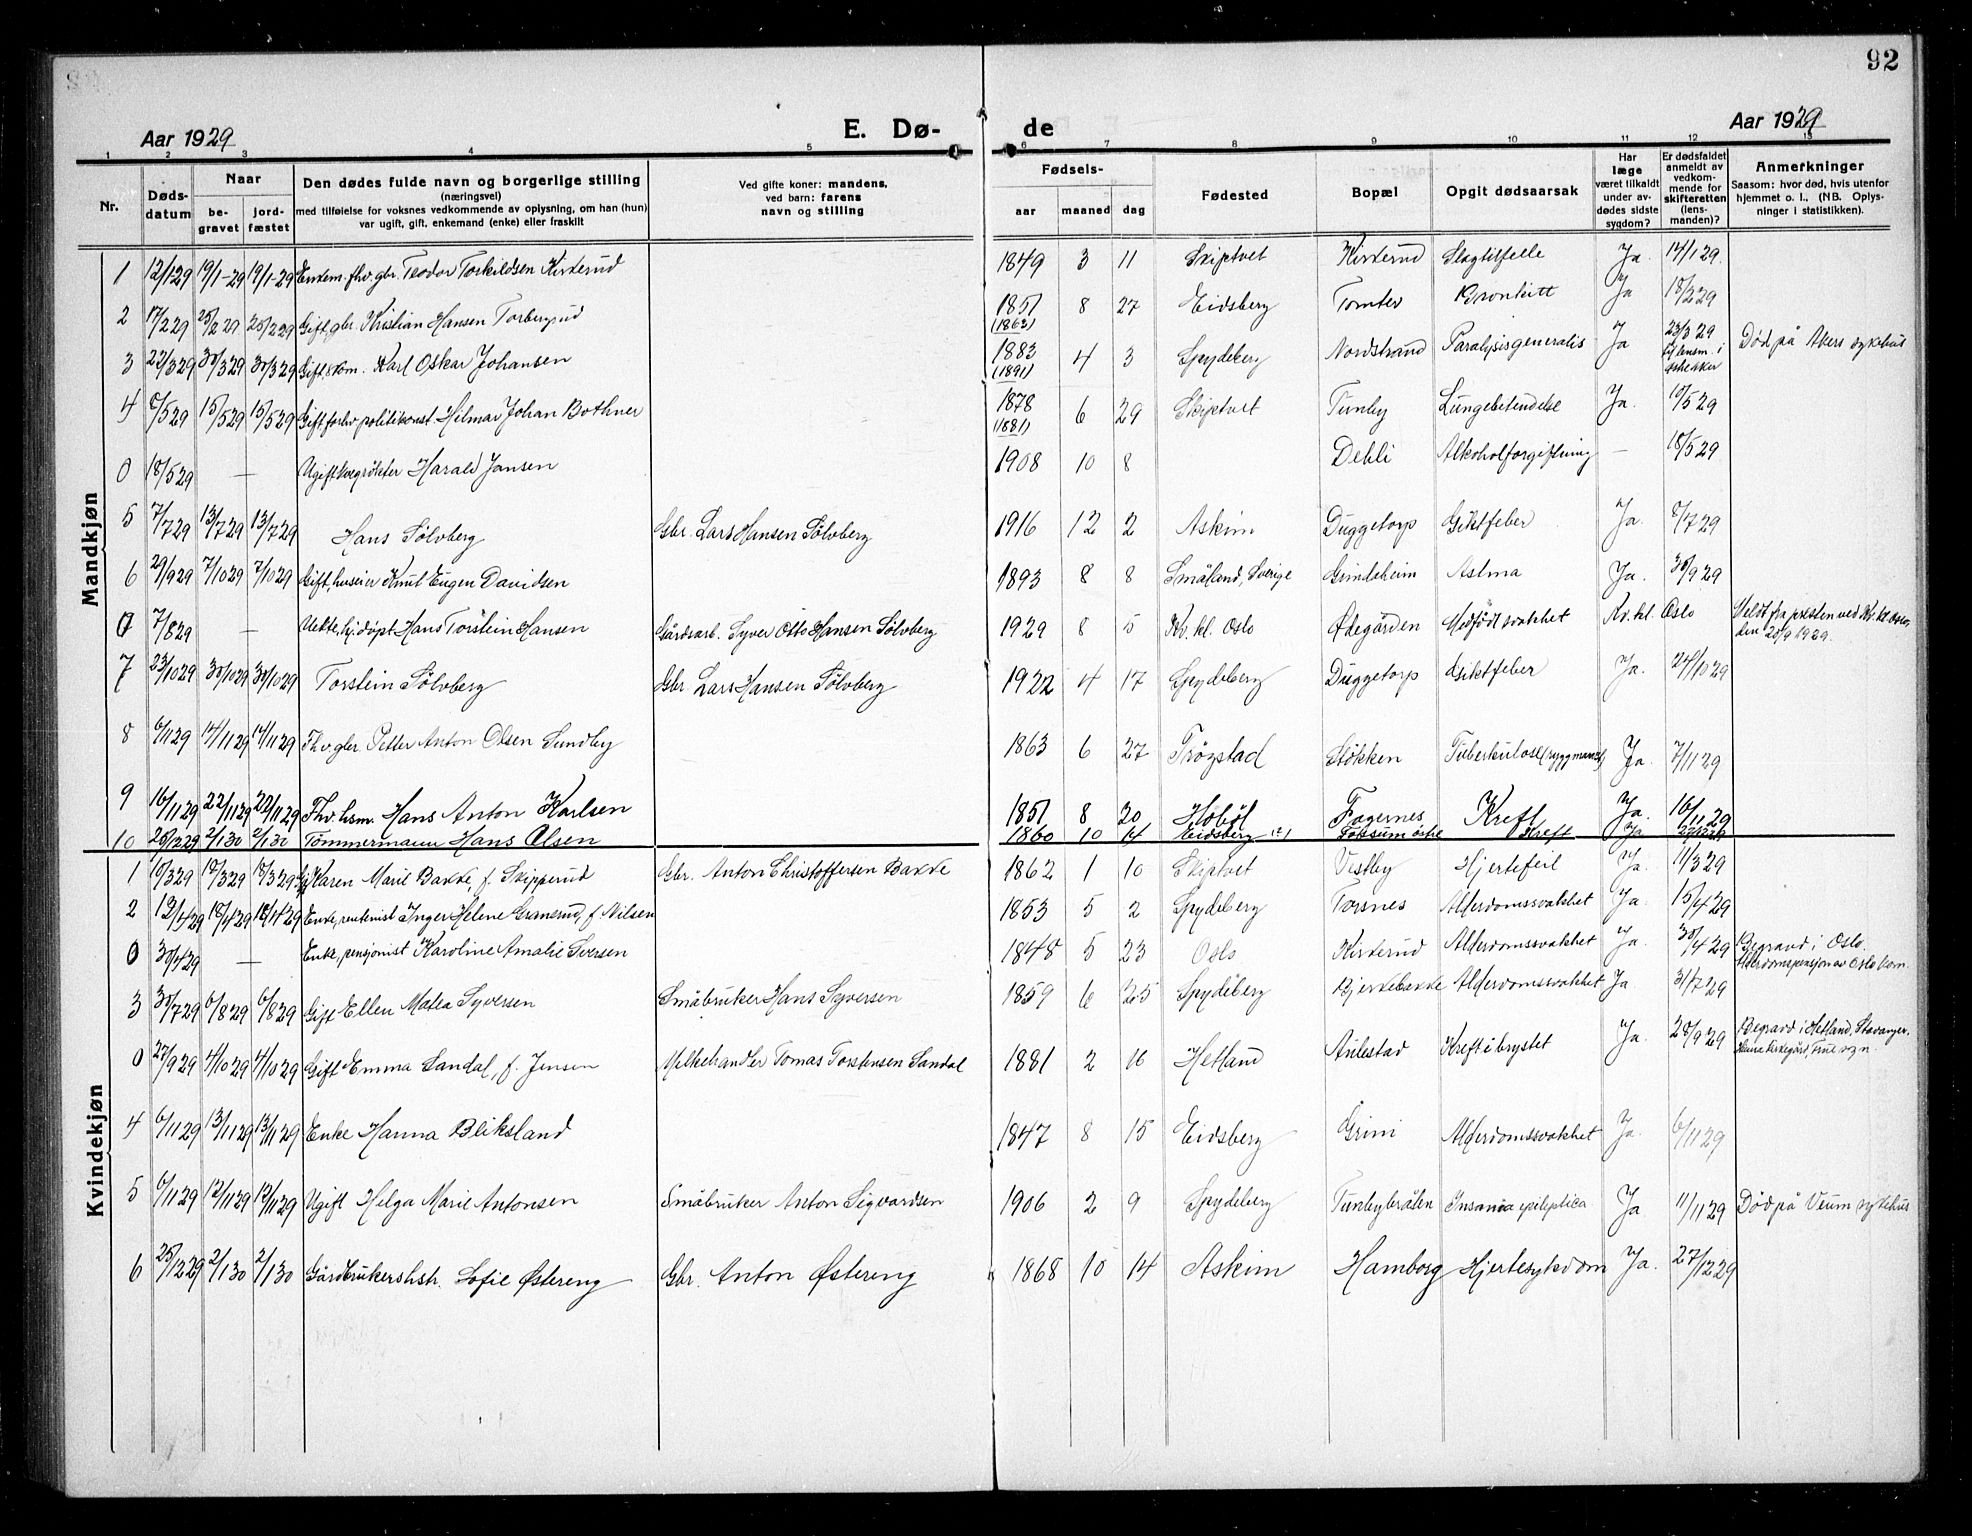 92
Aar 1929 E. Dø- de Aar 1929
1 2 3 4 5 6 7 8 9 10 11 12 13
Nr. Døds-datum Naar be-gravet jord-fæstet Den dødes fulde navn og borgerlige stilling (næringsvei) med tilføielse for voksnes vedkommende av oplysning, om han (hun) var ugift, gift, enkemand (enke) eller fraskilt Ved gifte koner: mandens, ved barn: farens navn og stilling Fødsels- aar maaned dag Fødested Bopæl Opgit dødsaarsak Har læge været tilkaldt under av-dødes sidste sygdom? Er dødsfaldet anmeldt av vedkom-mende for skifteretten (lens-manden)? Anmerkninger Saasom: hvor død, hvis utenfor hjemmet o. l., (NB. Oplys-ninger i statistikken).
Mandkjøn
1 12/1 29 19/1-29 19/1-29 Enkem. fhv. gbr. Teodor Torkildsen Kirterud 1849 3 11 Skiptvet Kirterud Slagtilfelle Ja 14/1 29.
2 17/2 29 25/2 29 25/2 29 Gift, gbr. Kristian Hansen Torbergrud 1851 (1863) 8 27 Eidsberg Tomter Bronkitt Ja 18/2 29
3 23/3 29 30/3 29 30/3 29 Gift, Karl Oskar Johansen 1883 (1891) 4 3 Spydeberg Nordstrand Paralysis generalis Ja 23/3 29 lensm. i Død på Akers sykehus
4 6/5 29 15/5 29 15/5 29 Gift forhv. politikonst. Hilmar Johan Bothner 1878 (1881) 6 29 Skiptvet Tunby Lungebetendelse Ja. 10/5 29
0 18/5 29 — Ugift Harald Jansen 1908 10 8 Dehli Alkoholforgiftning — 18/5 29
5 7/7 29 13/7 29 13/7 29 Hans Sölvberg Gbr. Lars Hansen Sölvberg 1916 12 2 Askim Duggetorp Giktfeber Ja. 8/7 29
6 29/9 29 7/10 29 7/10 29 Gift, huseier Knut Eugen Davidsen 1893 8 8 Småland, Sverige Grindeheim Astma Ja. 30/9 29
0 7/8 29 — Uekte, hj.döpt Hans Torstein Hansen Gårdsarb. Syver Otto Hansen Sölvberg 1929 8 5 Kv. kl. Oslo Ødegården Medfödt svakhet Kv. kl. Oslo Meldt fra presten ved Kv. kl. Oslo,
den 20/9 1929.
7 23/10 29 30/10 29 30/10 29 Torstein Sölvberg Gbr Lars Hansen Sölvberg 1922 4 17 Spydeberg Duggetorp Giktfeber Ja. 24/10 29
8 6/11 29 14/11 29 14/11 29 Fhv. gbr. Petter Anton Olsen Sundby 1863 6 27 Trögstad Stökken Tuberkulose Ja 7/11 29
9 16/11 29 22/11 29 22/11 29 Fhv. hsm. Hans Anton Karlsen 1851 8 20 Höböl Fagernes Kreft Ja. 16/11 29
10 26/12 29 2/1 30 2/1 30 Tömmermann Hans Olsen 1860 10 14 Eidsberg Kreft Ja
Kvindekjøn
1 10/3 29 18/3 29 18/3 29 Karen Marie Bakke, f. Skipperud Gbr. Anton Christoffersen Bakke 1862 1 10 Skiptvet Vestby Hjertefeil Ja. 11/3 29
2 13/4 29 18/4 29 18/4 29 Enke, rentenist Inger Helene Granerud, f. Nilsen 1853 5 2 Spydeberg Torsnes Alderdomssvakhet Ja 15/4 29
0 30/4 29 — Enke, pensjonist Karoline Amalie Iversen 1848 5 23 Oslo Kirterud Alderdomssvakhet Ja. 30/4 29 Begravd i Oslo.
Alderdomspensjon av Oslo kom.
3 30/7 29 6/8 29 6/8 29 Gift Ellen Matea Syversen Småbruker Hans Syversen 1859 6 25 Spydeberg Bjerkebakke Alderdomssvakhet Ja 31/7 29
0 27/9 29 4/10 29 4/10 29 Gift Emma Sandal, f. Jensen Melkehandler Tomas Torstensen Sandal 1881 2 16 Hetland Aulestad Kreft i brystet Ja. 28/9 29 Begravd i Hetland, Stavanger.
4 6/11 29 13/11 29 13/11 29 Enke Hanna Bliksland 1847 8 15 Eidsberg Grini Alderdomssvakhet Ja. 6/11 29
5 6/11 29 12/11 29 12/11 29 Ugift Helga Marie Antonsen Småbruker Anton Sigvardsen 1906 2 9 Spydeberg Tunbybråten Insania epileptica Ja 11/11 29 Død på Veum sykehus
6 25/12 29 2/1 30 2/1 30 Gårdbrukershstr. Sofie Østereng Gbr. Anton Østereng 1868 10 14 Askim Hamborg Hjertesykdom Ja. 27/12 29